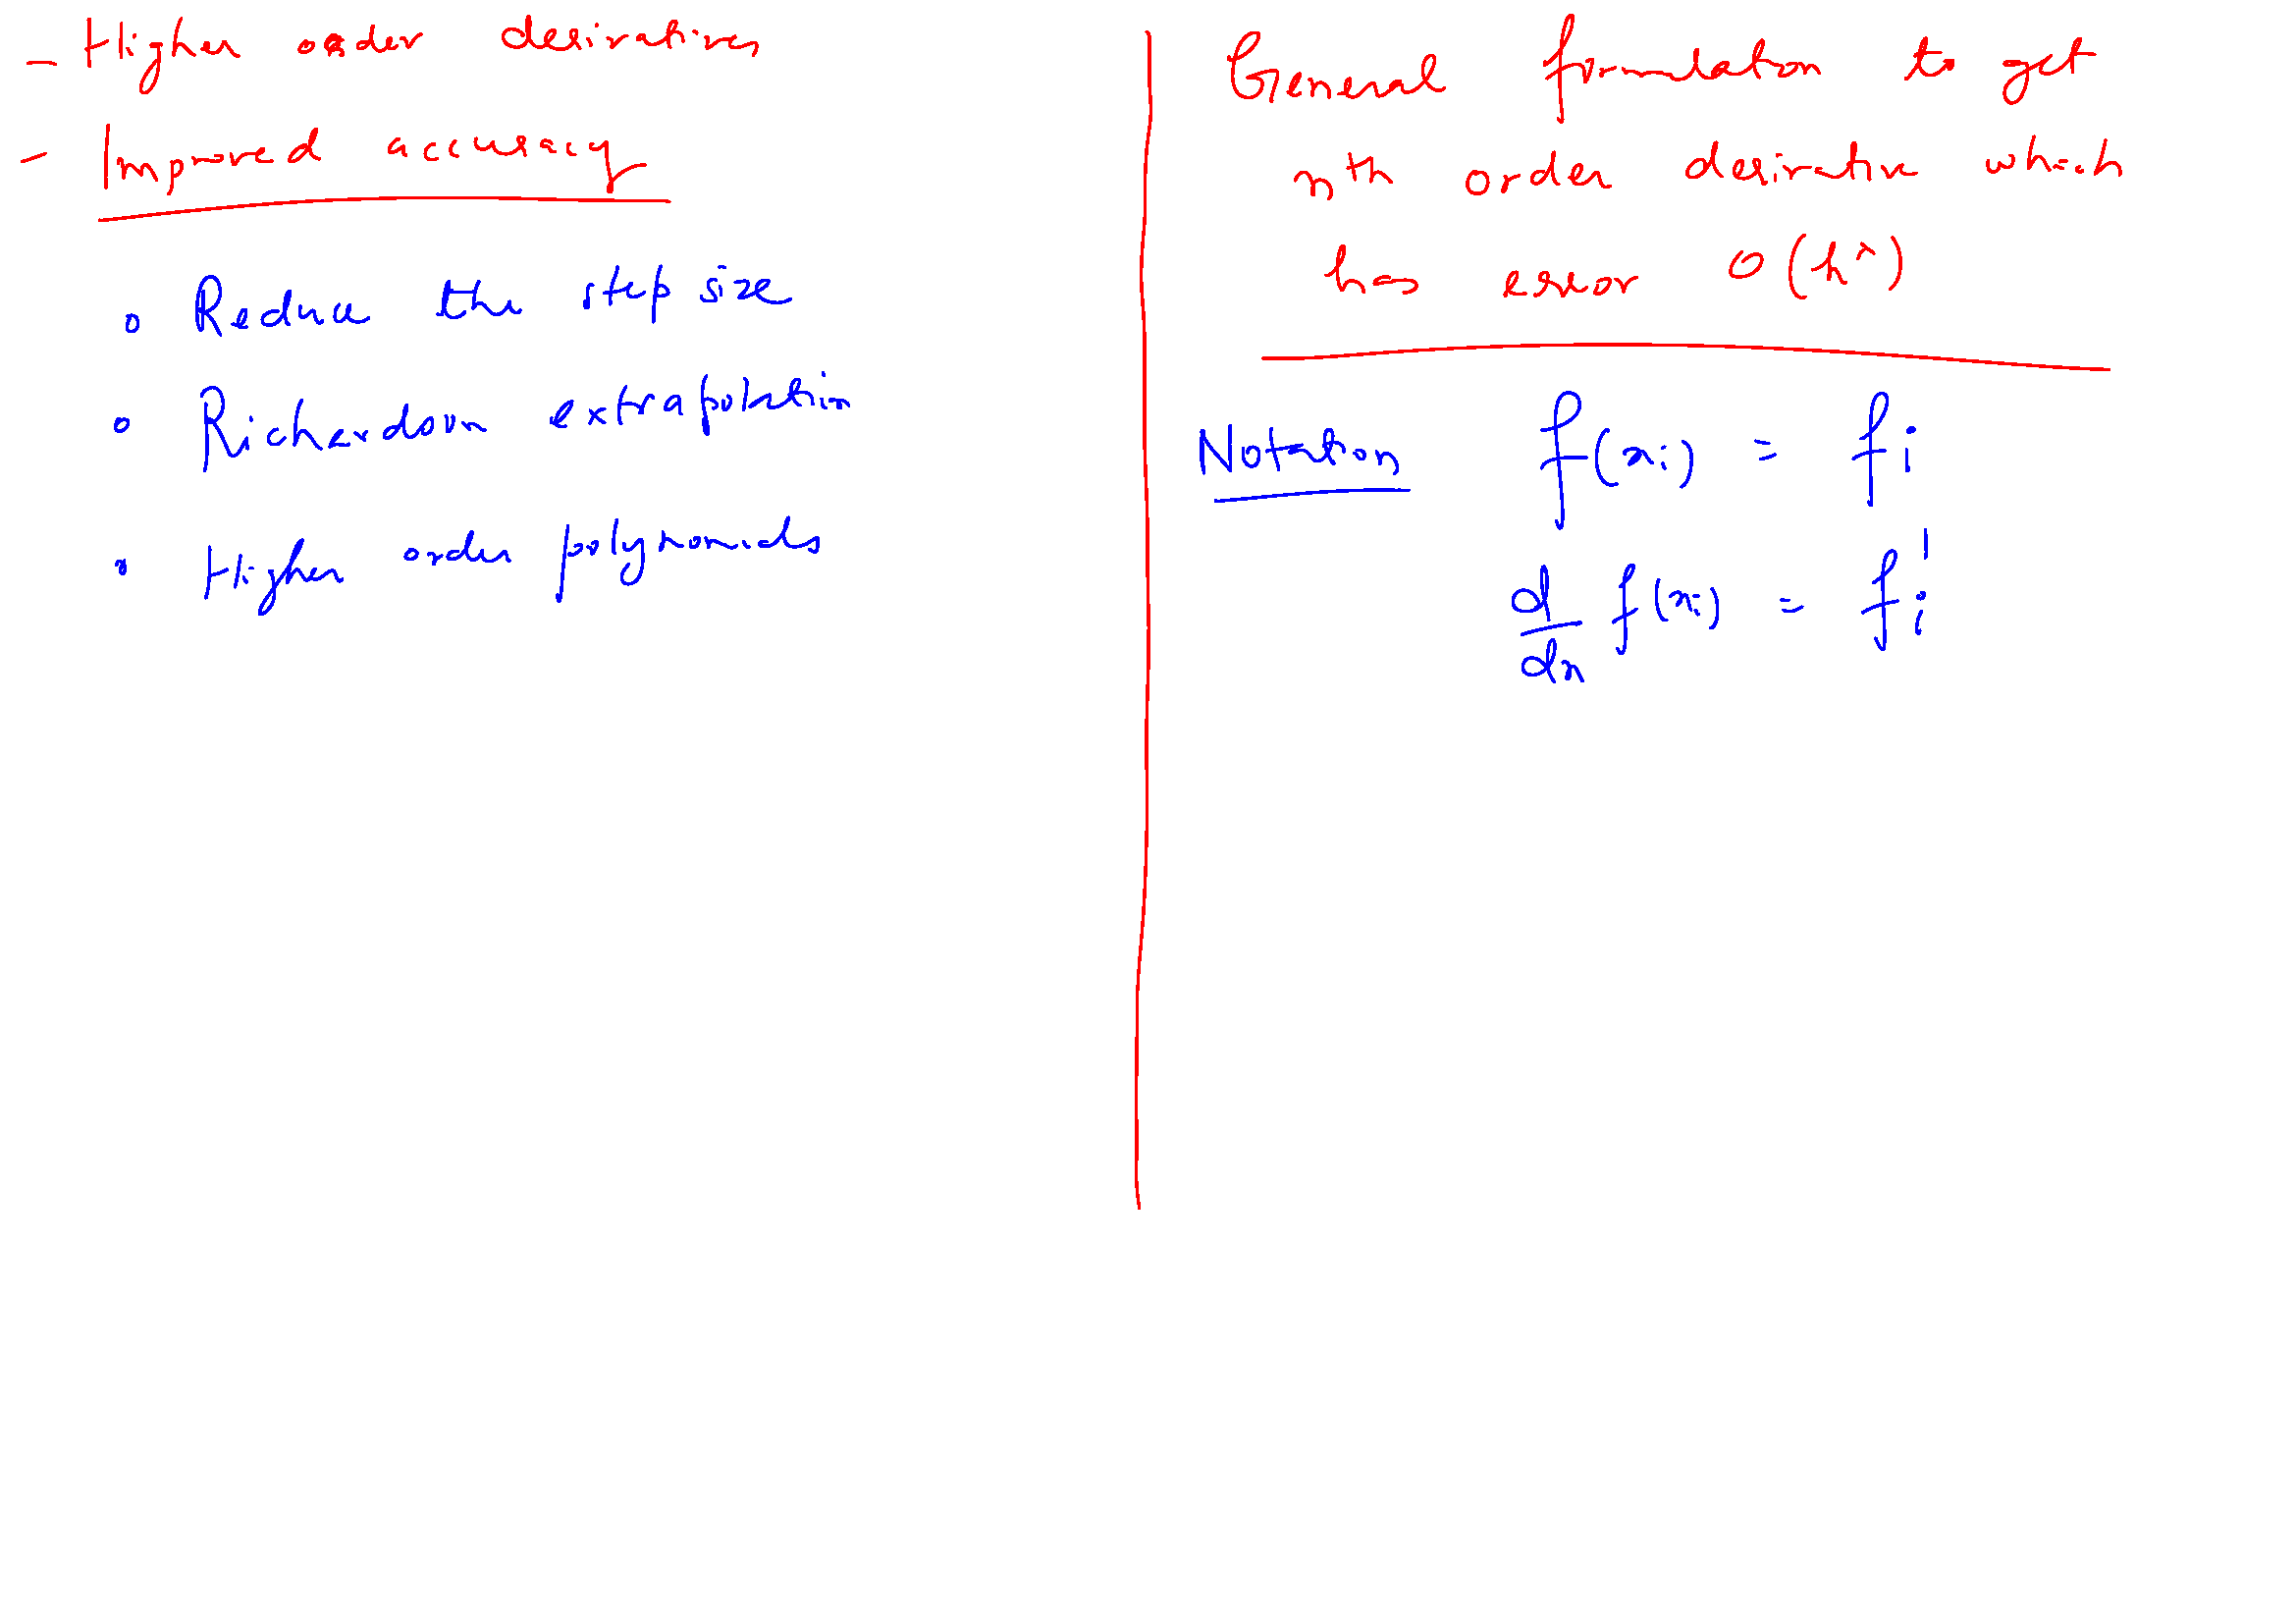 - Higher order derivatives
- Improved accuracy
o Reduce the step size
o Richardson extrapolation
o Higher order polynomials
General formulation to get
nth order derivative which
has error O(h^)
Notation f(xi) = fi
d/dx f(xi) = fi'